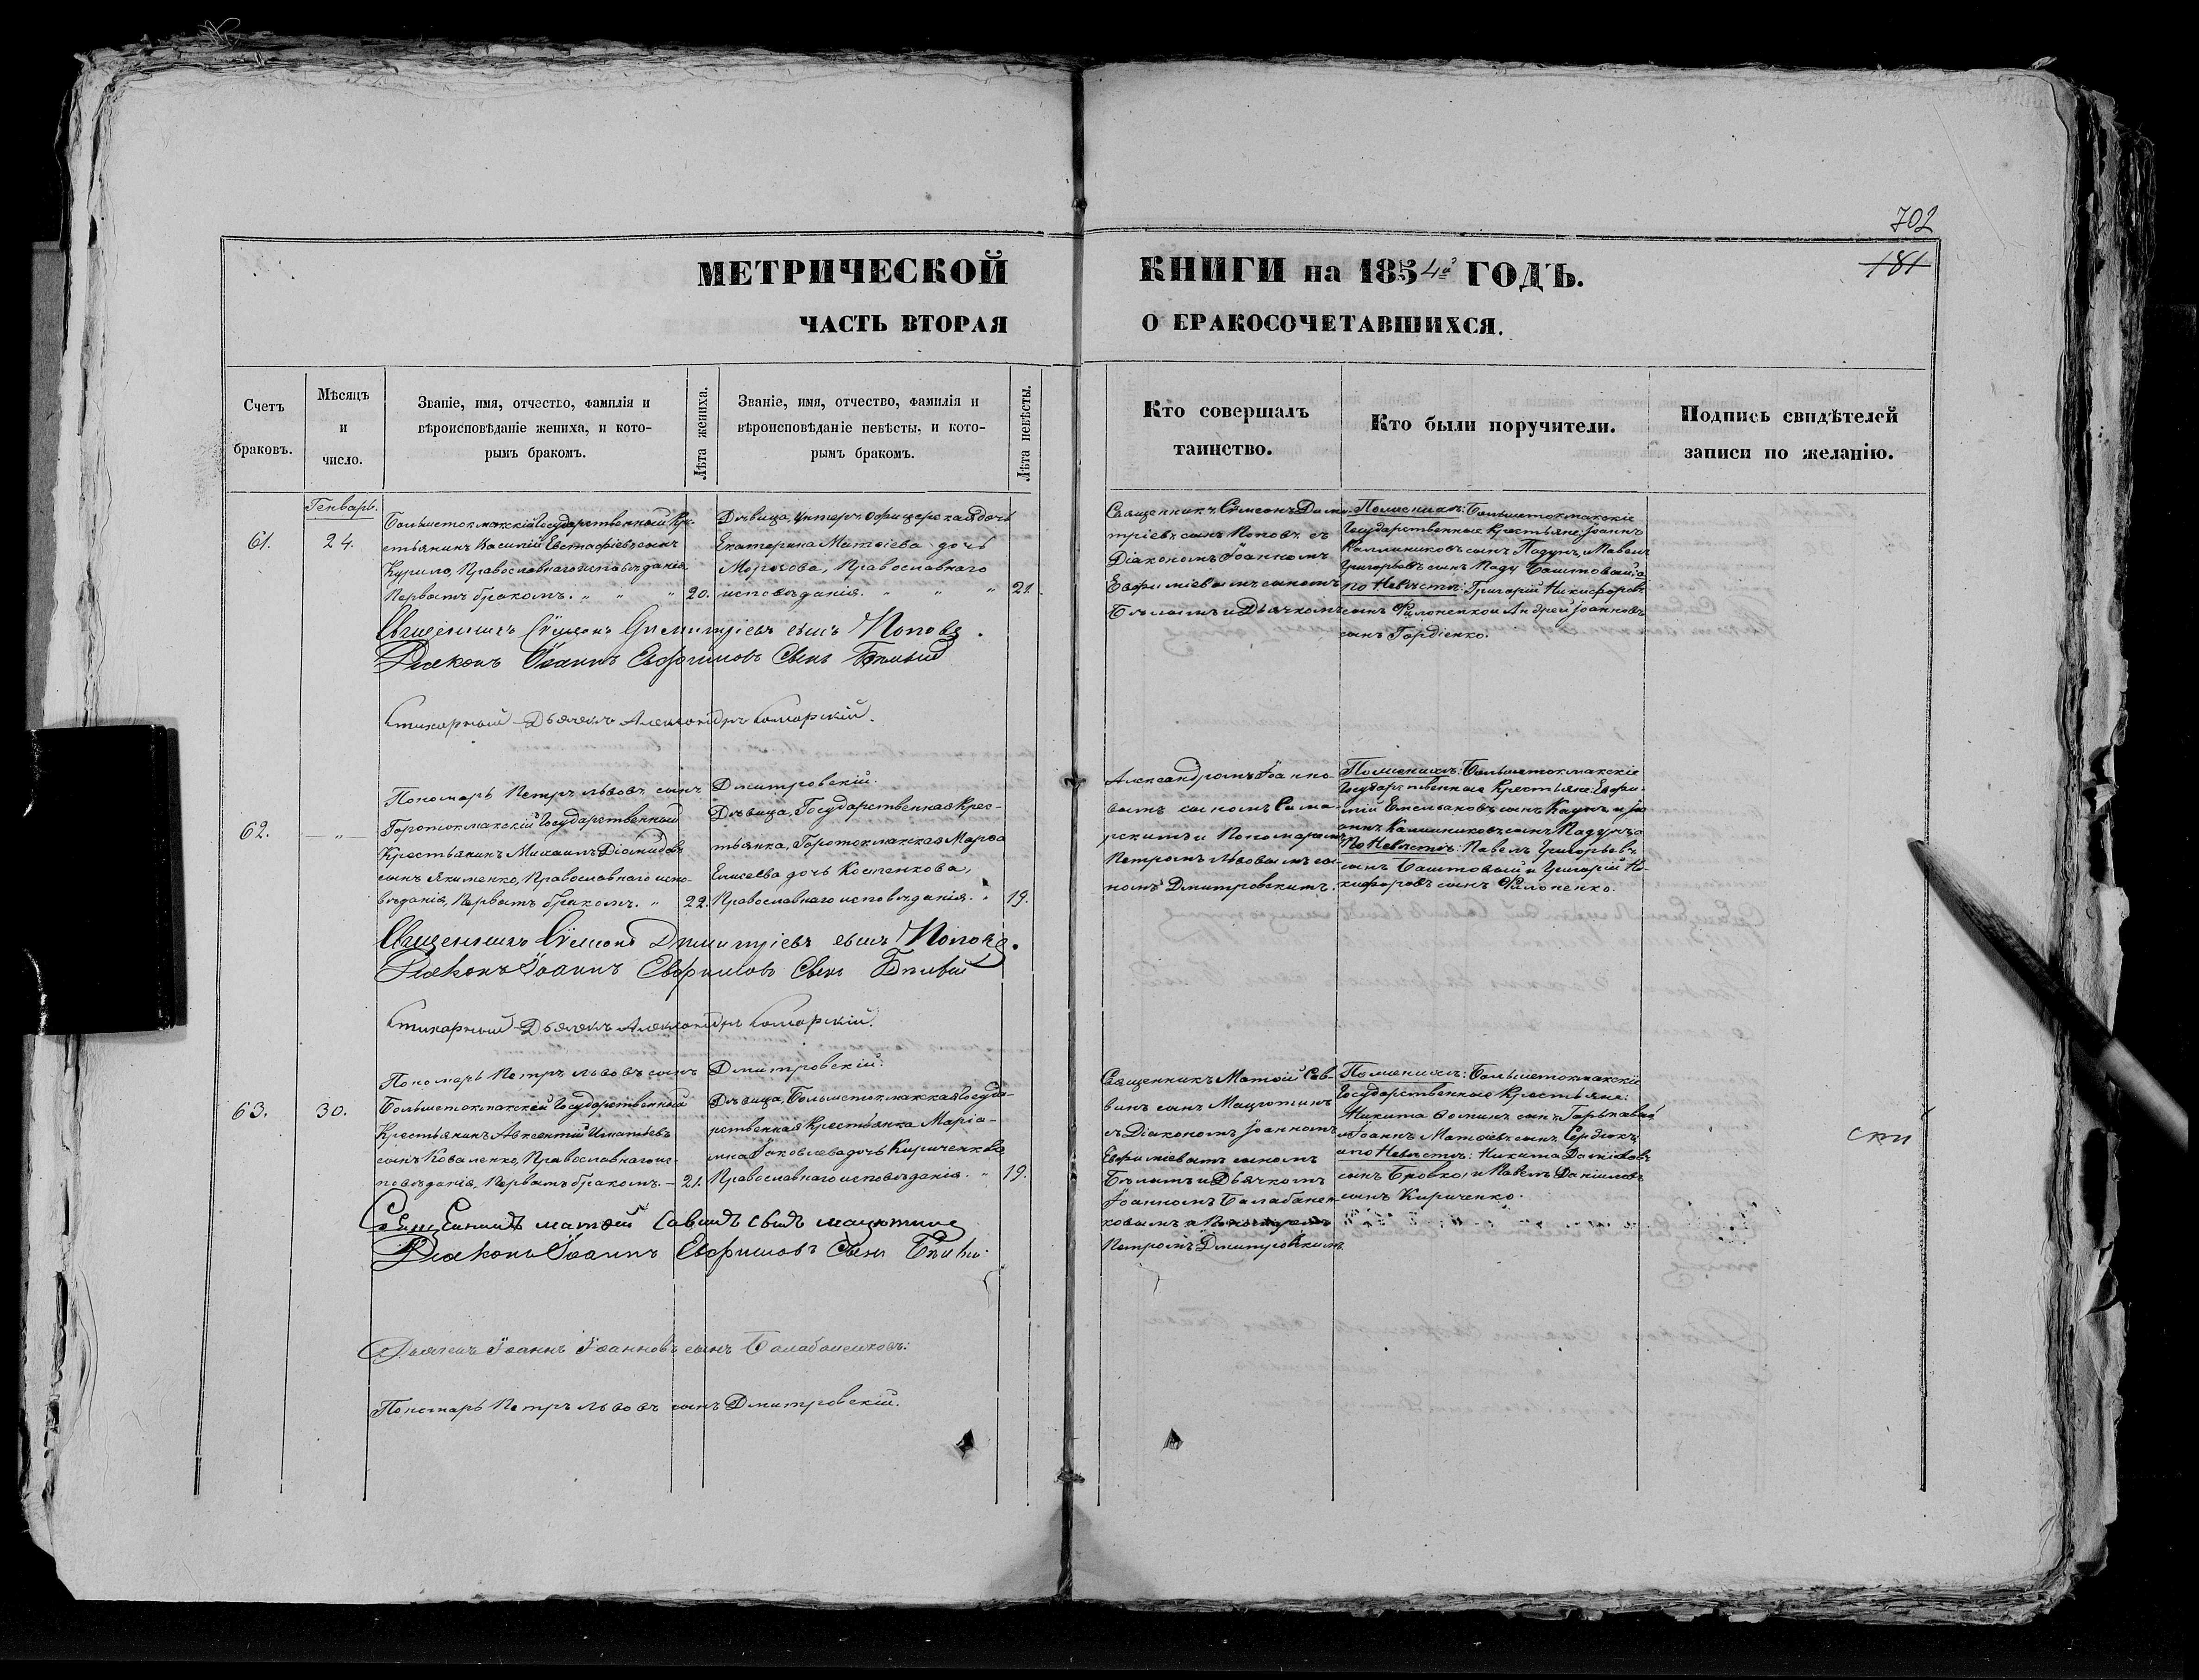 702
181
МЕТРИЧЕСКОЙ КНИГИ на 1854й ГОДЪ.
ЧАСТЬ ВТОРАЯ О БРАКОСОЧЕТАВШИХСЯ.
Счетъ браковъ.
Мѣсяцъ и число.
Званіе, имя, отчество, фамилія и
вѣроисповѣданіе жениха, и кото-
рымъ бракомъ.
Лѣта жениха.
Званіе, имя, отчество, фамилія и
вѣроисповѣданіе невѣсты, и кото-
рымъ бракомъ.
Лѣта невѣсты.
Кто совершалъ
таинство.
Кто были поручители.
Подпись свидѣтелей
записи по желанію.
Генварь.
61.
24.
Большетокмакскій Государственный Кре-
стьянинъ Василій Евстафіевъ сынъ
Курило, Православнаго исповѣданія
Первымъ бракомъ. " " "
20.
Дѣвица, Унтеръ-офицерская дочь
Екатерина Матѳіева дочь
Морозова, Православнаго
исповѣданія. " " "
21.
Священникъ Сѵмеонъ Дими-
тріевъ сынъ Поповъ съ
Діакономъ Іоанномъ
Евфиміевымъ сыномъ
Бѣлымъ и Дьячкомъ
По женихѣ: Большетокмакскіе
Государственные Крестьяне: Іоаннъ
Каллиниковъ сынъ Падунъ, и Павелъ
Григорьевъ сынъ Баштовый; а
по Невѣстѣ: Григорій Никифоровъ
сынъ Филоненко и Андрей Іоанновъ
сынъ Гордіенко.
Священникъ Сѵмеонъ Димитріевъ сынъ Поповъ.
Діаконъ Іоаннъ Евфимовъ Сынъ Бѣлый
Стихарный Дьячекъ Александръ Самарскій.
Пономарь Петръ Львовъ сынъ Дмитровскій.
62.
— " —
Горотокмакскій Государственный
Крестьянинъ Михаилъ Діомидовъ
сынъ Якименко, Православнаго испо-
вѣданія, Первымъ бракомъ. "
22.
Дѣвица, Государственная Крес-
тьянка, Горотокмакская Марѳа
Елисеева дочь Костенкова,
Православнаго исповѣданія. "
19.
Александромъ Іоанно-
вымъ сыномъ Сама-
рскимъ и Пономаремъ
Петромъ Львовымъ сы-
номъ Дмитровскимъ.
По женихѣ: Большетокмакскіе
Государственные Крестьяне: Евфи-
мій Емельяновъ сынъ Кацунъ и Іо-
аннъ Каллиниковъ сынъ Падунъ, а
По Невѣстѣ: Павелъ Григорьевъ
сынъ Баштовый и Григорій Ни-
кифоровъ сынъ Филоненко.
Священникъ Сѵмеонъ Димитріевъ сынъ Поповъ.
Діаконъ Іоаннъ Евфимовъ Сынъ Бѣлый
Стихарный Дьячекъ Александръ Самарскій.
Пономарь Петръ Львовъ сынъ Дмитровскій.
63.
30.
Большетокмакскій Государственный
Крестьянинъ Авксентій Игнатьевъ
сынъ Коваленко, Православнаго ис-
повѣданія, Первымъ бракомъ. —
21.
Дѣвица, Большетокмакская Госуда-
рственная Крестьянка Маріа-
мна Іаковлева дочь Кириченкова
Православнаго исповѣданія. "
19.
Священникъ Матѳій Сав-
винъ сынъ Мацютинъ
съ Діакономъ Іоанномъ
Евфиміевымъ сыномъ
Бѣлымъ и Дьячкомъ
Іоанномъ Балабанен-
ковымъ и Пономаремъ
Петромъ Дмитровскимъ
По женихѣ: Большетокмакскіе
Государственные Крестьяне:
Никита Ѳоминъ сынъ Гарькавый
и Іоаннъ Матѳіевъ сынъ Сердюкъ;
а по Невѣстѣ: Никита Даніиловъ
сынъ Бровко, и Павелъ Даніиловъ
сынъ Кириченко.
Священникъ Матѳей Савинъ сынъ Мацютинъ
Діаконъ Іоаннъ Евфимовъ Сынъ Бѣлый
Дьячекъ Іоаннъ Іоанновъ сынъ Балабаненковъ.
Пономарь Петръ Львовъ сынъ Дмитровскій.